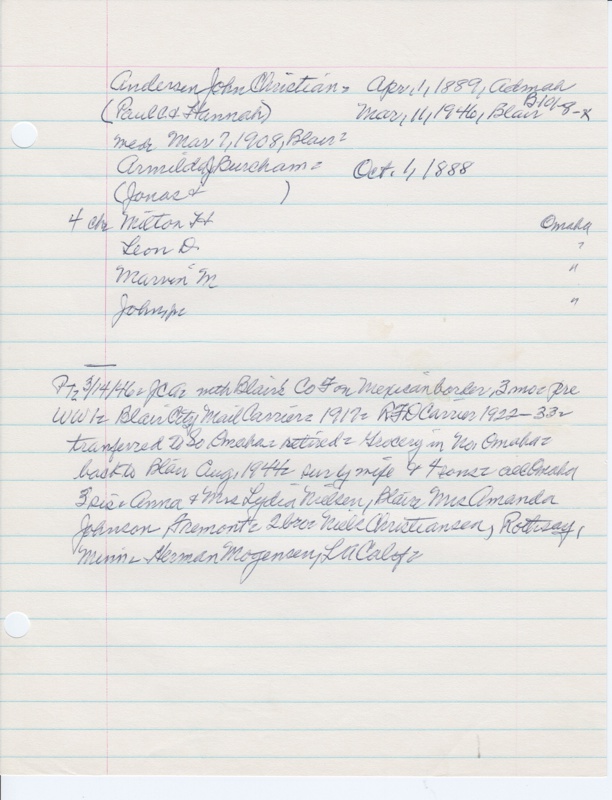 Andersen, John Christian = Apr. 1, 1889, Admah
(Paul C & Hannah) Mar. 11, 1946, Blair B101-8-x
med Mar 7, 1908, Blair =
Armilda J Burcham =  Oct. 1, 1888
(Jonas & )
4 chr Milton H Omaha
Leon D. "
Marvin M "
John, jr "
PT 3/14/46 = JCA with Blair's Co F on Mexican border, 3 mo = pre
WW1 = Blair City Mail Carrier = 1917 = RFD Carrier 1922-33 =
tranferred to So. Omaha = retired = Grocery in No. Omaha =
back to Blair Aug, 1944 = surv by wife & 4 sons = all Omaha
3 sis = Anna & Mrs Lydia Nielsen, Blair Mrs Amanda
Johnson Fremont = 2 bro = Niels Christiansen,
Minn = Herman Mogensen, LA Calif =